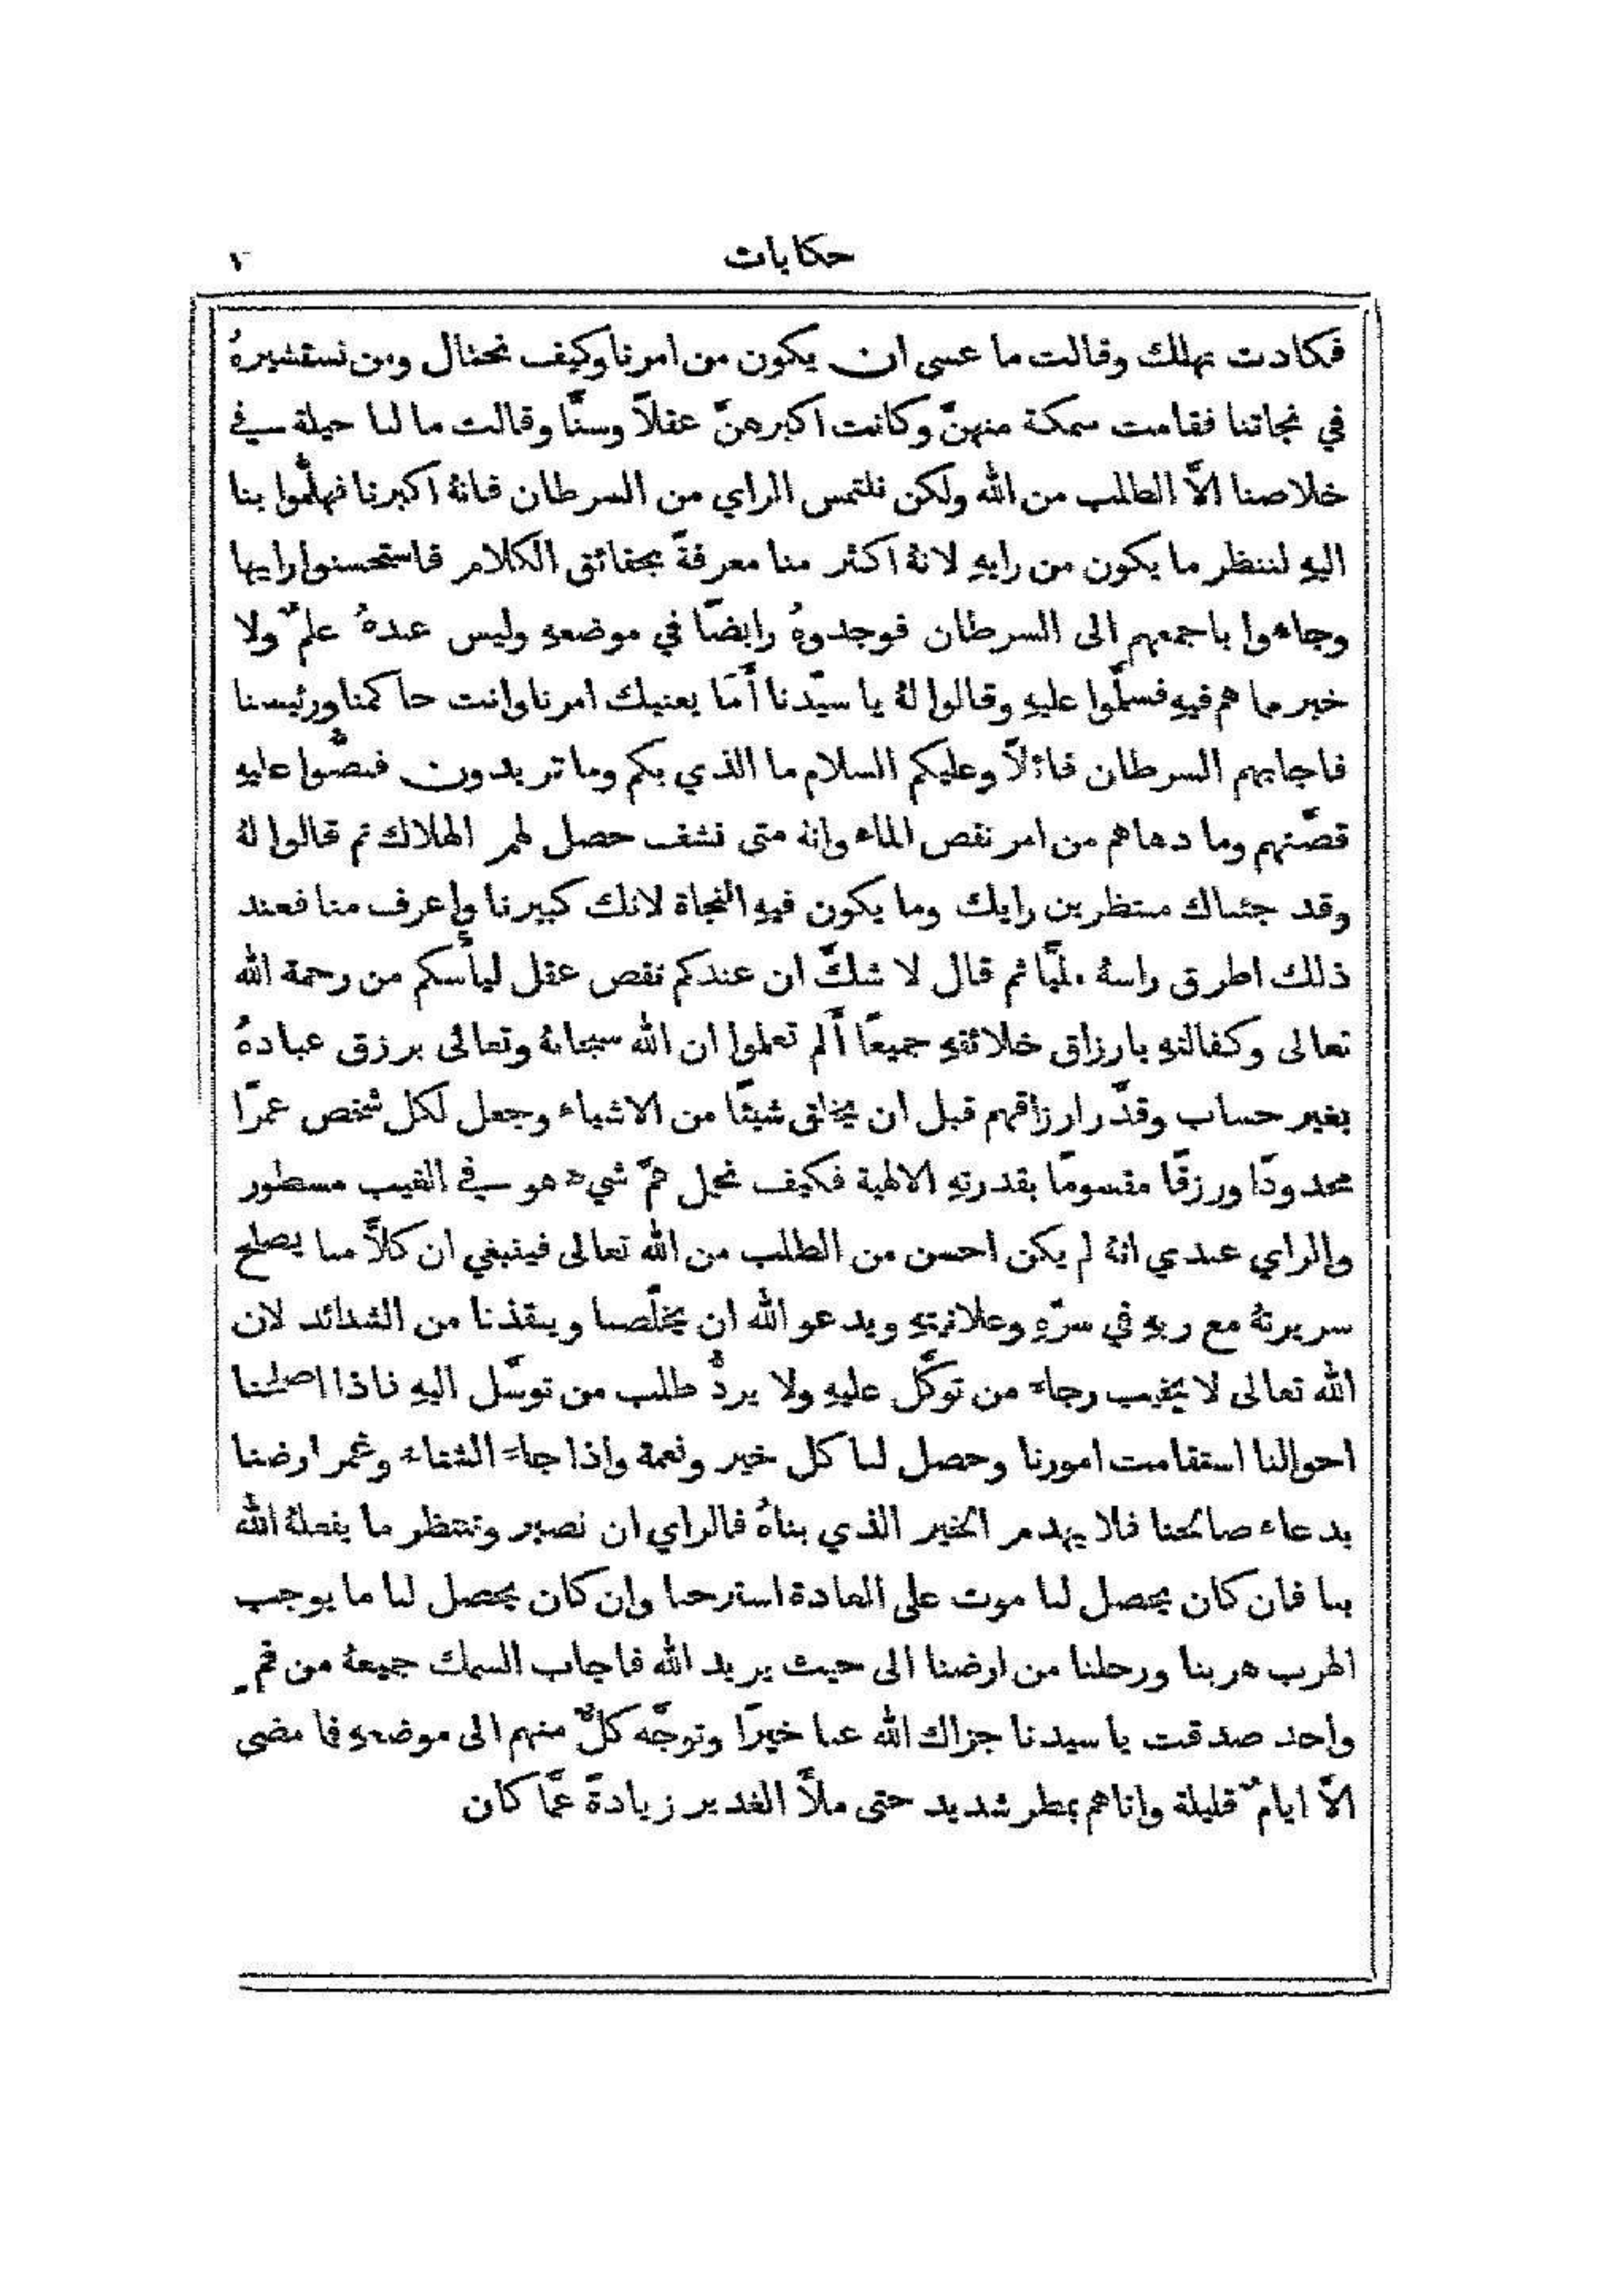 حكايات
فكادت تهلك وقالت ما عسى ان يكون من امرنا وكيف نحتال ومن نستشيرهُ
في نجاتنا فقامت سمكة منهنَّ وكانت اكبرهنَّ عقلاً وسنًّا وقالت ما لنا حيلة في
خلاصنا الاَّ الطلب من الله ولكن نلتمس الراي من السرطان فانهُ اكبرنا فهلمُّوا بنا
اليهِ لننظر ما يكون من رايهِ لانهُ اكثر منا معرفةً بحقائق الكلام فاستحسنوا رايها
وجاءوا باجمعهم الى السرطان فوجدوهُ رابضًا في موضعهِ وليس عندهُ علمٌ ولا
خبر مما هم فيهِ فسلَّموا عليهِ وقالوا لهُ يا سيّدنا أَمَا يعنيك امرنا وانت حاكمنا ورئيسنا
فاجابهم السرطان قائلاً وعليكم السلام ما الذي بكم وما تريدون فقصُّوا عليهِ
قصَّتهم وما دهاهم من امر نقص الماء وانهُ متى نشف حصل لهم الهلاك ثم قالوا لهُ
وقد جئناك منتظرين رايك وما يكون فيهِ النجاة لانك كبيرنا واعرف منا فعند
ذلك اطرق راسهُ مليًّا ثم قال لا شكَّ ان عندكم نقص عقل ليأسكم من رحمة الله
تعالى وكفالتهِ بارزاق خلائقهِ جميعًا أَلم تعلموا ان الله سبحانهُ وتعالى يرزق عبادهُ
بغير حساب وقدَّر ارزاقهم قبل ان يخلق شيئًا من الاشياء وجعل لكل شخص عمرًا
محدودًا ورزقًا مقسومًا بقدرتهِ الالهية فكيف نحمل همَّ شيءٍ هو في الغيب مسطور
والراي عندي انهُ لم يكن احسن من الطلب من الله تعالى فينبغي ان كلاًّ منا يصلح
سريرتهُ مع ربهِ في سرّهِ وعلانيتهِ ويدعو الله ان يخلّصنا وينقذنا من الشدائد لان
الله تعالى لا يخيب رجاء من توكَّل عليهِ ولا يردُّ طلب من توسَّل اليهِ فاذا اصلحنا
احوالنا استقامت امورنا وحصل لنا كل خير ونعمة واذا جاءَ الشتاء وغمر ارضنا
بدعاء صالحنا فلا يهدم الخير الذي بناهُ فالراي ان نصبر وننتظر ما يفعلهُ الله
بنا فان كان يحصل لنا موت على العادة استرحنا وان كان يحصل لنا ما يوجب
الهرب هربنا ورحلنا من ارضنا الى حيث يريد الله فاجاب السمك جميعهُ من فمٍ
واحد صدقت يا سيدنا جزاك الله عنا خيرًا وتوجَّه كلٌّ منهم الى موضعهِ فما مضى
الاَّ ايامٌ قليلة واتاهم بمطر شديد حتى ملأَ الغدير زيادةً عمَّا كان